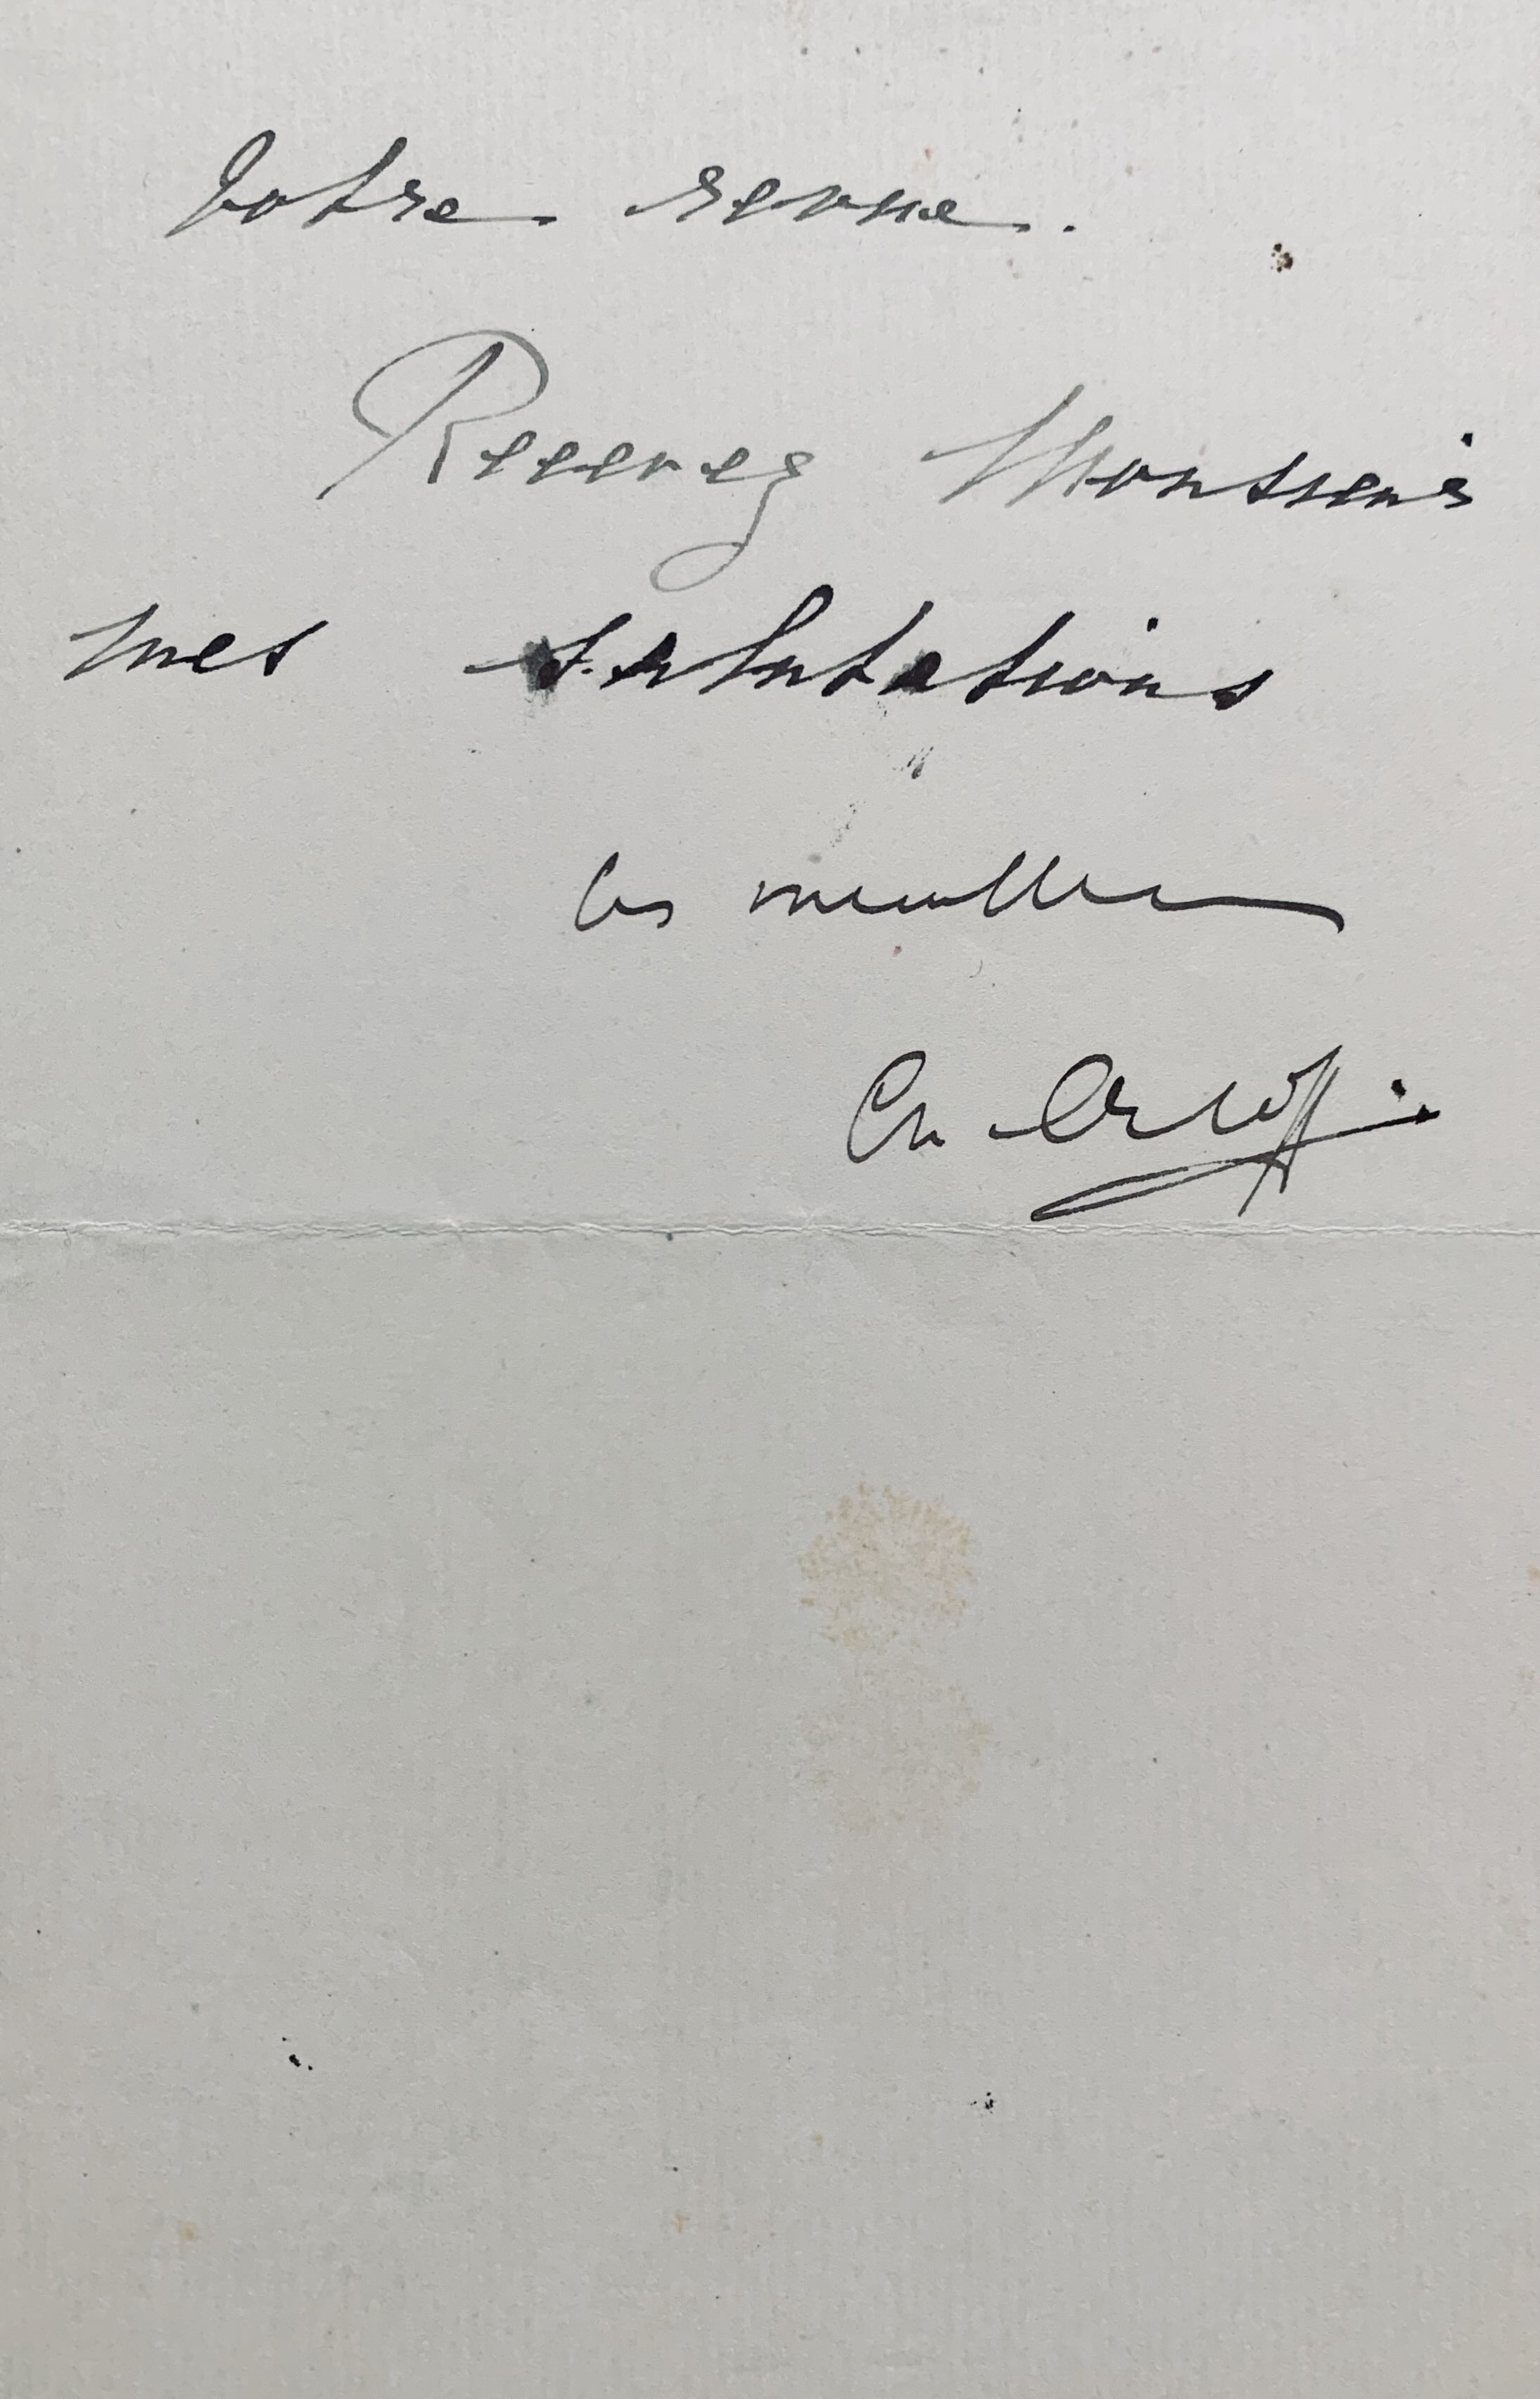 votre revue.
Recevez Monsieur
mes salutations
les meilleures
Ch Orloff